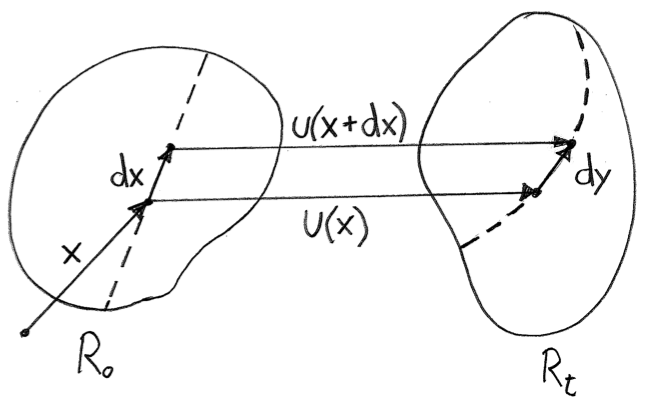 u(x+dx)
dx
dy
u(x)
x
R₀
Rₜ